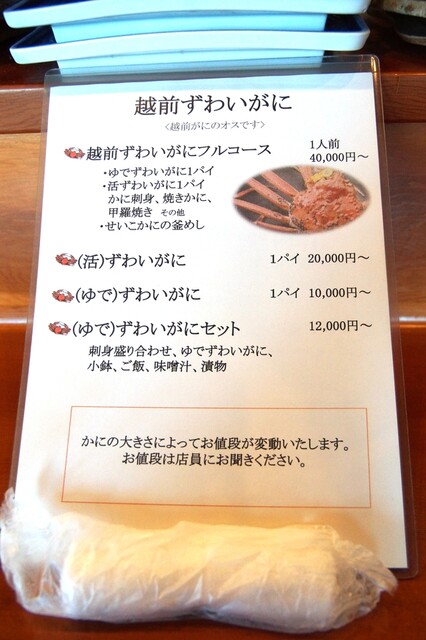 越前ずわいがに
<越前がにのオスです>
越前ずわいがにフルコース 1人前 40,000円～
・ゆでずわいがに1パイ
・活ずわいがに1パイ
かに刺身、焼きかに、
甲羅焼き その他
・せいこかにの釜めし
(活)ずわいがに 1パイ 20,000円～
(ゆで)ずわいがに 1パイ 10,000円～
(ゆで)ずわいがにセット 12,000円～
刺身盛り合わせ、ゆでずわいがに、
小鉢、ご飯、味噌汁、漬物
かにの大きさによってお値段が変動いたします。
お値段は店員にお聞きください。